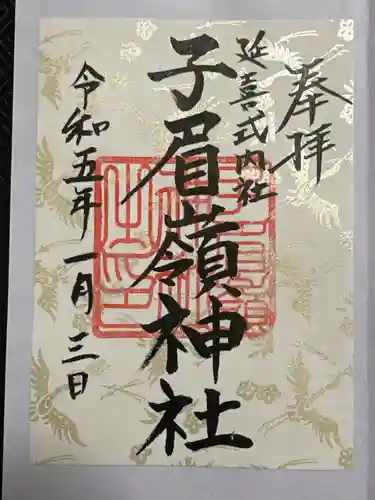 奉拝
延喜式内社
子眉嶺神社
令和五年 一月 三日